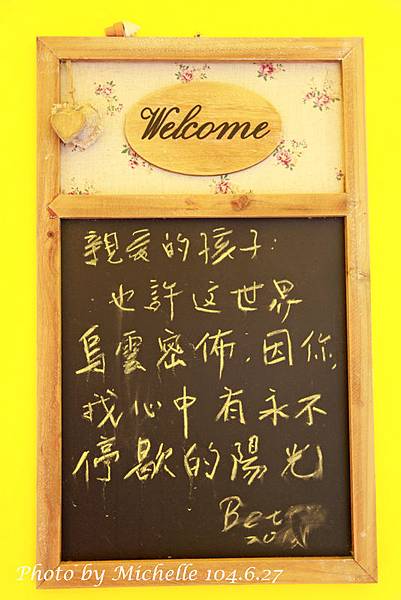 Welcome
親愛的孩子:
也許这世界
烏雲密佈,因你,
我心中有永不
停歇的陽光
Photo by Michelle 104.6.27